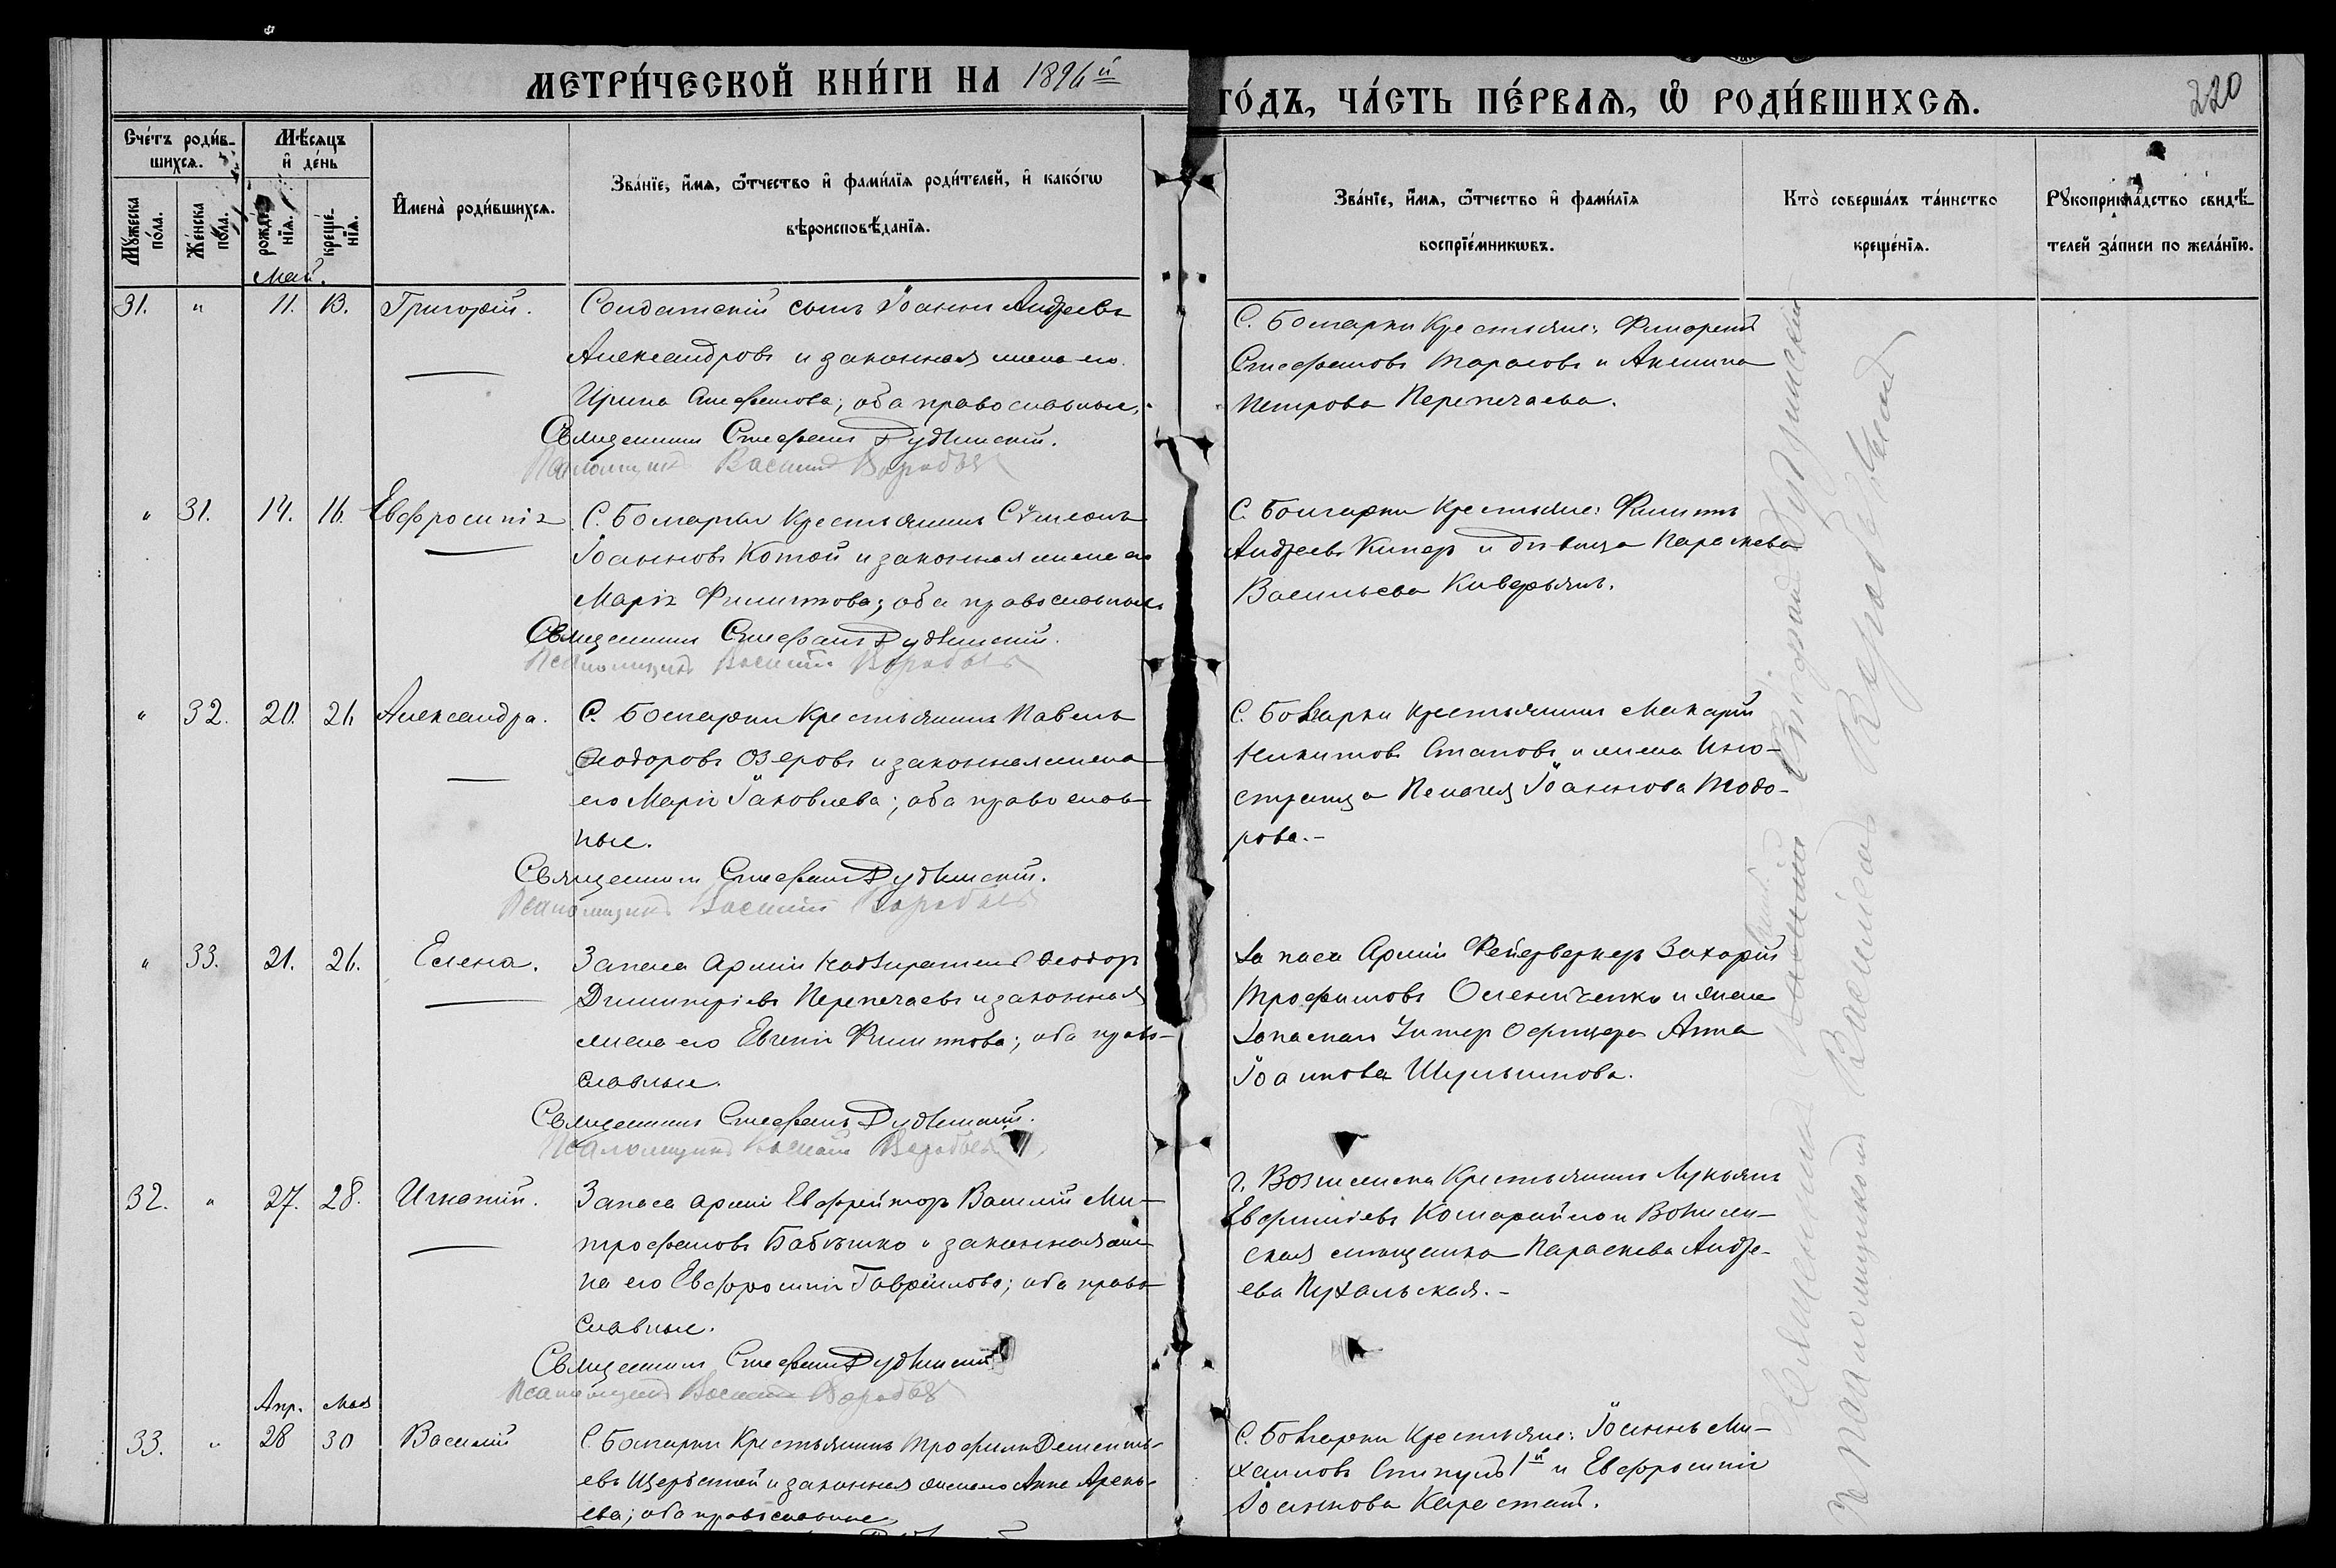 МЕТРИ́ЧЕСКОЙ КНИ́ГИ НА 1896й
ГО́ДЪ, ЧА́СТЬ ПЕ́РВАѦ, Ѡ҆ РОДИ́ВШИХСѦ.
220
Сче́тъ роди́в-
шихсѧ.
Мѣ́сѧцъ
и҆ де́нь
Мꙋ́жеска
по́ла.
Же́нска
по́ла.
рожде́-
нїѧ.
креще́-
нїѧ.
И҆мена̀ роди́вшихсѧ.
Зва́нїе, и҆́мѧ, ѻ҆́тчество и҆ фами́лїѧ роди́телей, и҆ како́гѡ
вѣроисповѣ́данїѧ.
Зва́нїе, и҆́мѧ, ѻ҆́тчество и҆ фами́лїѧ
воспрїе́мникѡвъ.
Кто̀ соверша́лъ та́инство
креще́нїѧ.
Рꙋкоприкла́дство свидѣ́-
телей за́писи по жела́нїю.
Май.
31. " 11. 13. Григорій.
Солдатскій сынъ Іоаннъ Андреевъ
Александровъ и законная жена его
Ирина Стефанова; оба православные.
Священникъ Стефанъ
Псаломщикъ Василій Воробьевъ
С. Болгарки Крестьяне: Филоретъ
Стефановъ Тарасовъ и Акилина
Петрова Перепечаева.
" 31. 14. 16. Евфросинія
С. Болгарки Крестьянинъ Сѵмеонъ
Іоанновъ Котой и законная жена его
Марія Филиппова; оба православные
Священникъ Стефанъ
Псаломщикъ Василій Воробьевъ
С. Болгарки Крестьяне: Филиппъ
Андреевъ Киперъ и дѣвица Параскева
Васильева
" 32. 20. 26. Александра.
С. Болгарки Крестьянинъ Павелъ
Ѳеодоровъ Озеровъ и законная жена
его Марія Іаковлева; оба православ-
ные.
Священникъ Стефанъ
Псаломщикъ Василій Воробьевъ
С. Болгарки Крестьянинъ Макарій
Никитовъ Статовъ и жена Ино-
странца Пелагея Іоаннова Тодо-
рова.-
" 33. 21. 26. Елена.
Запаса Арміи Ѳеодоръ
Димитріевъ Перепечаевъ и законная
жена его Евгенія Филиппова; оба право-
славные.
Священникъ Стефанъ
Псаломщикъ Василій Воробьевъ
Запаса Арміи Фейерверкеръ Захарій
Трофимовъ Оленченко и жена
Запаснаго Унтеръ Офицера Анна
Іоаннова
32. " 27. 28. Игнатій.
Запаса арміи Ефрейторъ Василій Ми-
трофановъ Бабѣшко и законная же-
на его Евфросинія Гавріилова; оба право-
славные.
Священникъ Стефанъ
Псаломщикъ Василій Воробьевъ
г. Вознесенска Крестьянинъ Лукьянъ
Евфиміевъ и Вознесен-
ская мѣщанка Параскева Андре-
ева Пухальская.-
Апр. Мая
33. " 28 30 Василій
С. Болгарки Крестьянинъ Трофимъ Дементь-
евъ и законная жена его Анна Арень-
ева; оба православные
С. Болгарки Крестьяне: Іоаннъ Ми-
хаиловъ 1й и Евфросинія
Іоаннова
Священникъ
съ псаломщикомъ Василіемъ Воробьевымъ